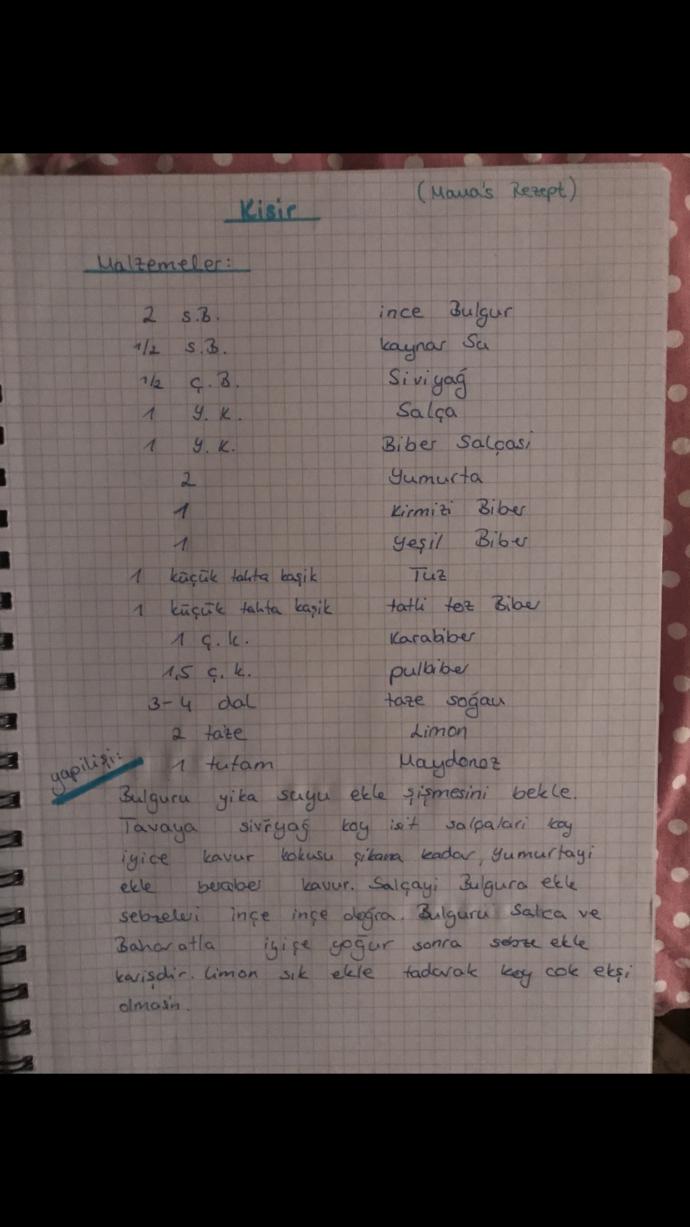 (Mama's Rezept)
Kisir
Malzemeler:
2 S.B. ince Bulgur
1/2 S.B. kaynar Su
1/2 Ç.B. Siviyağ
1 Y.K. Salça
1 Y.K. Biber Salçasi
2 Yumurta
1 Kirmizi Biber
1 yeşil Biber
1 küçük tahta kaşik Tuz
1 küçük tahta kaşik tatli toz Biber
1 ç.k. Karabiber
1,5 ç.k. pulbiber
3-4 dal taze soğan
2 taze Limon
1 tutam Maydonoz
yapilişi:
Bulguru yika suyu ekle şişmesini bekle.
Tavaya siviyağ koy isit salçalari koy
iyice kavur kokusu çikana kadar, Yumurtayi
ekle beraber kavur. Salçayi Bulgura ekle
sebzeleri inçe inçe doğra. Bulguru Salca ve
Baharatla iyiçe yoğur sonra sebze ekle
karişdir. Limon sik ekle tadarak koy cok ekşi
olmasin.